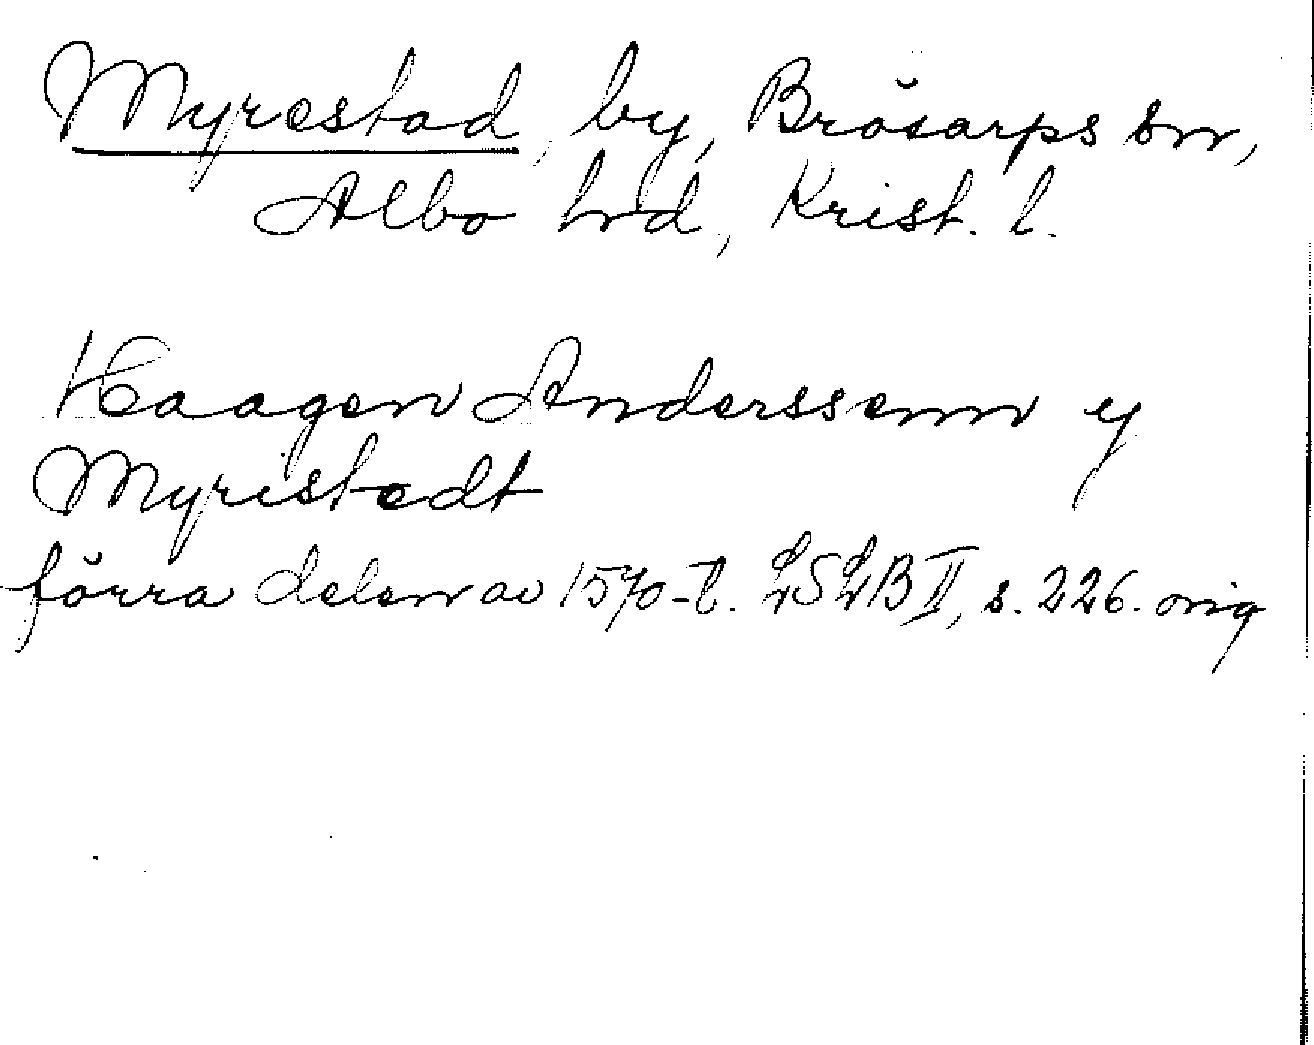 Myrestad, by, Brösarps sn,
Albo hrd, Krist. l.
Haagen Anderssenn y
Myristedt
förra delen av 1570-t. LSLB II, s. 226. orig